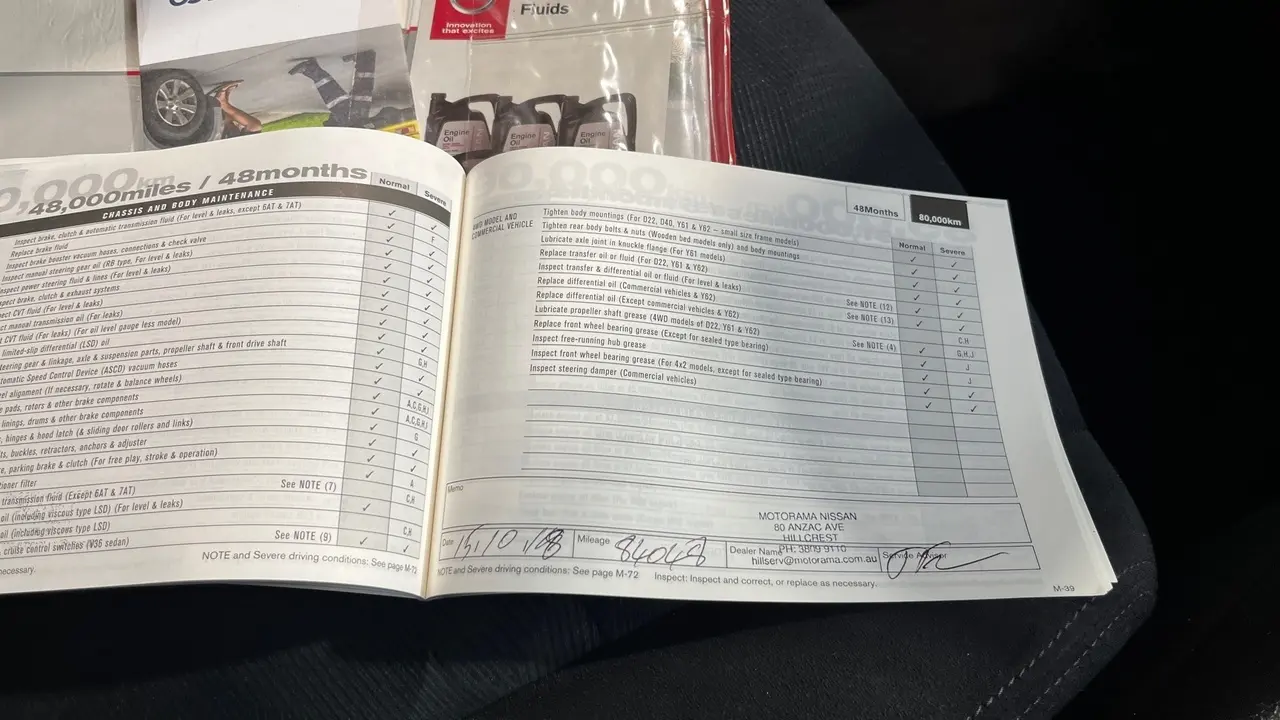 Fluids
Innovation
that excites
Engine
Oil
Engine
Oil
Engine
Oil
48,000miles / 48months
Normal
Severe
CHASSIS AND BODY MAINTENANCE
Inspect brake, clutch & automatic transmission fluid (For level & leaks, except 6AT & 7AT)
Replace brake fluid
F
Inspect brake booster vacuum hoses, connections & check valve
Inspect manual steering gear oil (RB type, For level & leaks)
Inspect power steering fluid & lines (For level & leaks)
brake, clutch & exhaust systems
CVT fluid (For level & leaks)
manual transmission oil (For leaks)
CVT fluid (For leaks) (For oil level gauge less model)
limited-slip differential (LSD) oil
gear & linkage, axle & suspension parts, propeller shaft & front drive shaft
G,H
Speed Control Device (ASCD) vacuum hoses
alignment (If necessary, rotate & balance wheels)
pads, rotors & other brake components
A,C,G,H,J
linings, drums & other brake components
A,C,G,H,J
hinges & hood latch (& sliding door rollers and links)
G
buckles, retractors, anchors & adjuster
parking brake & clutch (For free play, stroke & operation)
filter
See NOTE (7)
A
transmission fluid (Except 6AT & 7AT)
C,H
oil (including viscous type LSD) (For level & leaks)
oil (including viscous type LSD)
C,H
cruise control switches (V36 sedan)
See NOTE (9)
NOTE and Severe driving conditions: See page M-72
necessary.
48Months
80,000km
4WD MODEL AND
COMMERCIAL VEHICLE
Normal
Severe
Tighten body mountings (For D22, D40, Y61 & Y62 – small size frame models)
Tighten rear body bolts & nuts (Wooden bed models only) and body mountings
Lubricate axle joint in knuckle flange (For Y61 models)
Replace transfer oil or fluid (For D22, Y61 & Y62)
Inspect transfer & differential oil or fluid (For level & leaks)
Replace differential oil (Commercial vehicles & Y62)
See NOTE (12)
Replace differential oil (Except commercial vehicles & Y62)
See NOTE (13)
C,H
Lubricate propeller shaft grease (4WD models of D22, Y61 & Y62)
G,H,J
Replace front wheel bearing grease (Except for sealed type bearing)
See NOTE (4)
J
Inspect free-running hub grease
J
Inspect front wheel bearing grease (For 4x2 models, except for sealed type bearing)
Inspect steering damper (Commercial vehicles)
Memo
MOTORAMA NISSAN
80 ANZAC AVE
HILLCREST
PH: 3809 9110
hillserv@motorama.com.au
Date
Mileage 84048
Dealer Name
Service Advisor
NOTE and Severe driving conditions: See page M-72
Inspect: Inspect and correct, or replace as necessary.
M-39